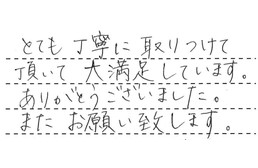 とても丁寧に取りつけて
頂いて大満足しています。
ありがとうございました。
またお願い致します。